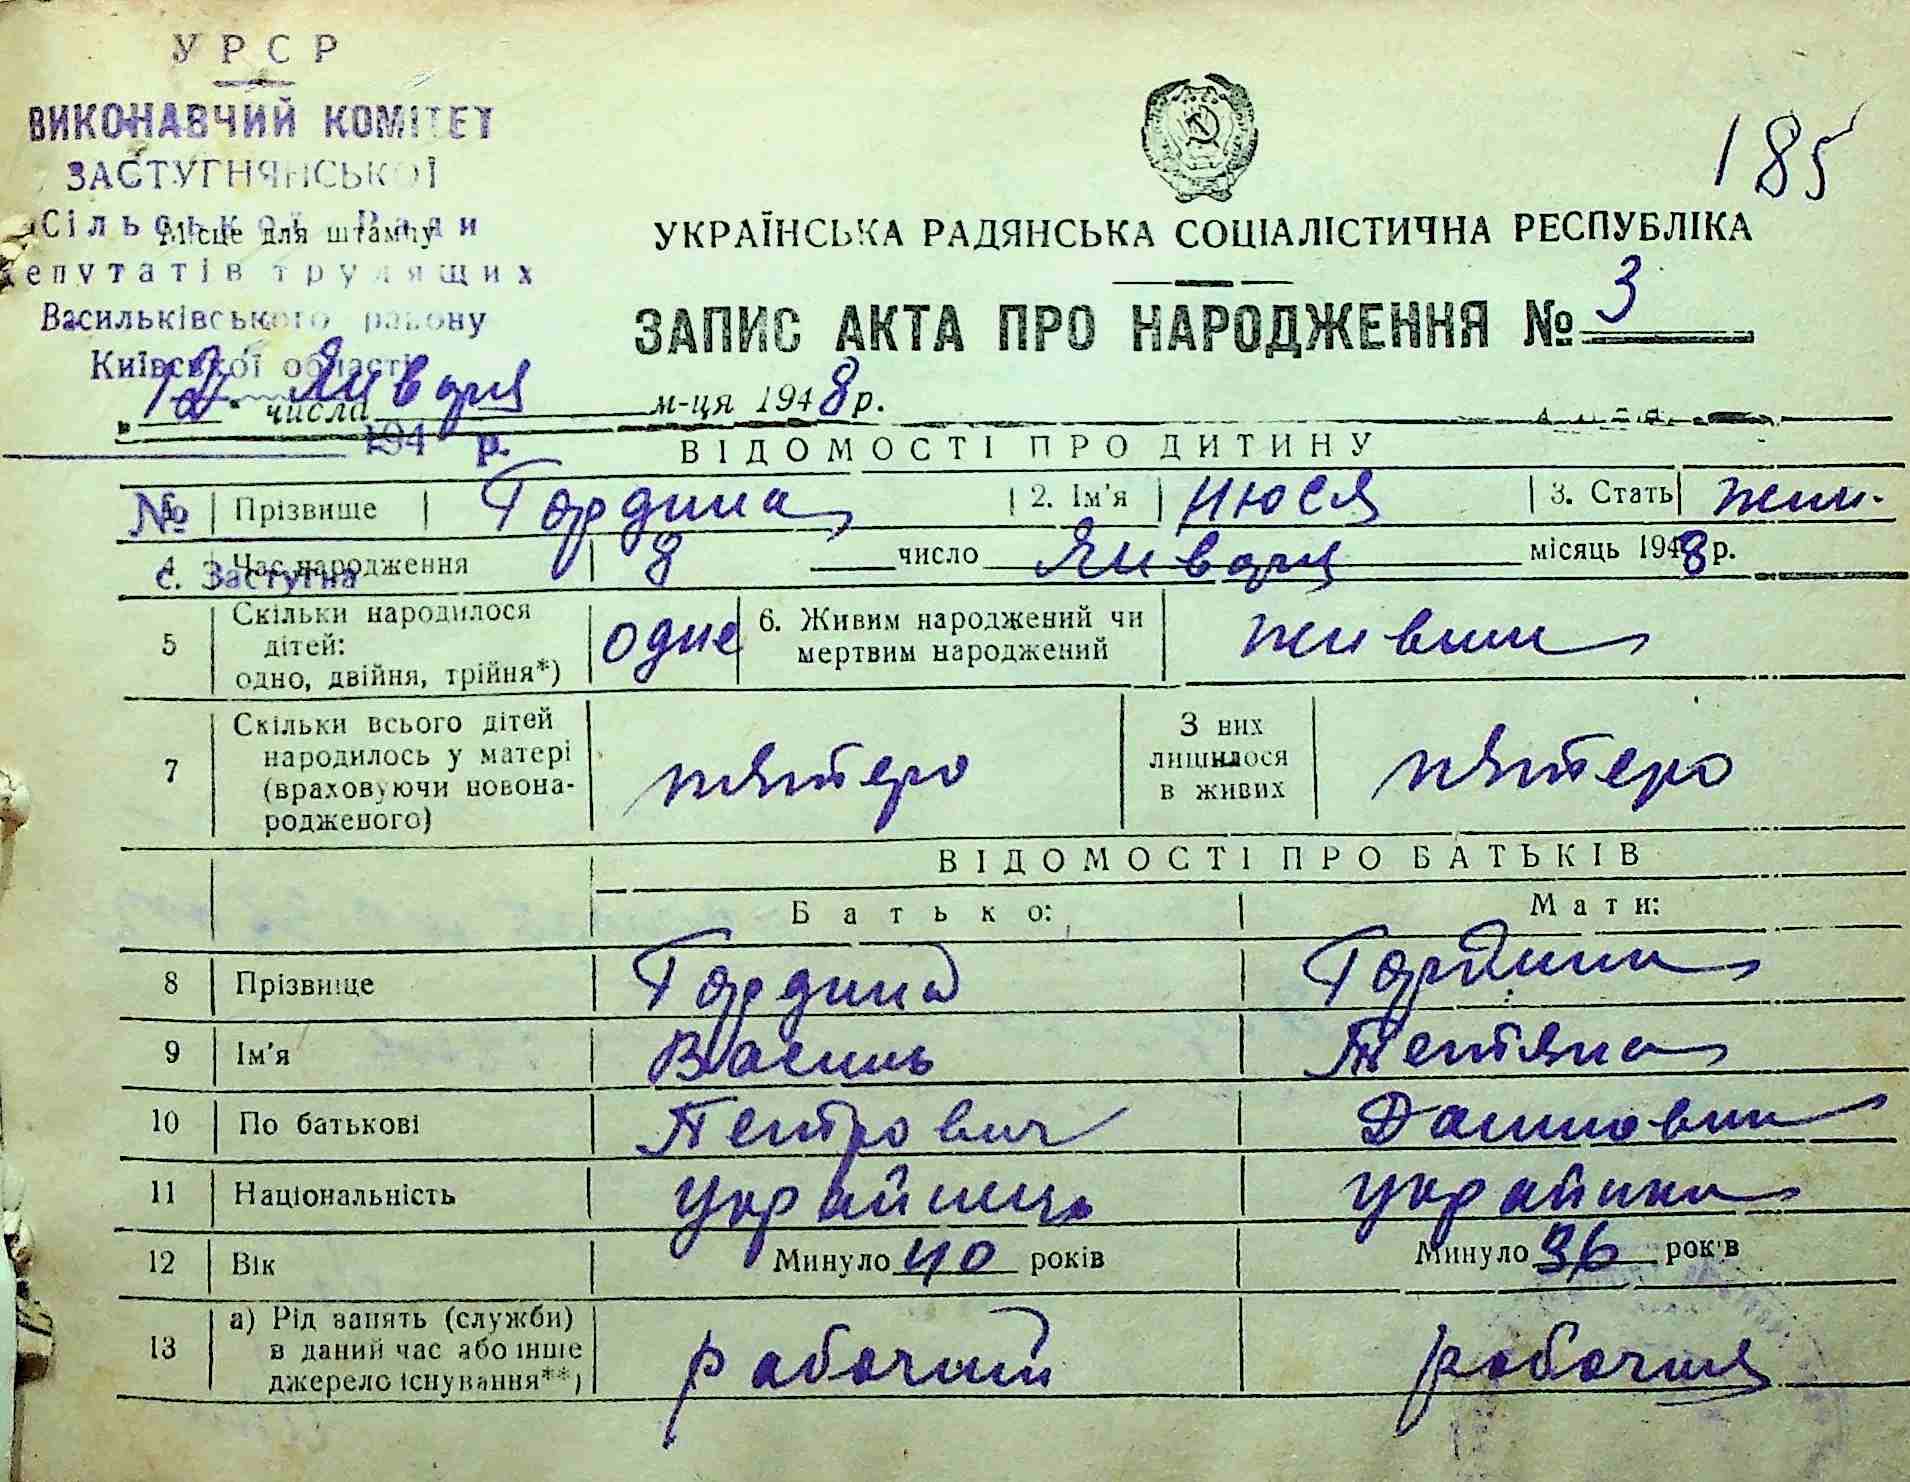 УРСР
ВИКОНАВЧИЙ КОМІТЕТ
ЗАСТУГНЯНСЬКОЇ
Сільської Ради
депутатів трудящих
Васильківського району
Київської області
194 р.
№
с. Застугна
Місце для штампу
185
УКРАЇНСЬКА РАДЯНСЬКА СОЦІАЛІСТИЧНА РЕСПУБЛІКА
ЗАПИС АКТА ПРО НАРОДЖЕННЯ № 3
„12" числа Января м-ця 1948 р.
ВІДОМОСТІ ПРО ДИТИНУ
Прізвище Гордина 2. Ім'я Нюся 3. Стать жин.
4 Час народження 8 число Января місяць 1948 р.
5 Скільки народилося дітей: одно, двійня, трійня*) одне 6. Живим народжений чи мертвим народжений живим
7 Скільки всього дітей народилось у матері (враховуючи новонародженого) пятеро З них лишилося в живих пятеро
ВІДОМОСТІ ПРО БАТЬКІВ
Батько: Мати:
8 Прізвище Гордина Гордина
9 Ім'я Василь Тетяна
10 По батькові Петрович
11 Національність Украйинець Украйинка
12 Вік Минуло 40 років Минуло 36 років
13 а) Рід занять (служби) в даний час або інше джерело існування**) рабочий рабочия